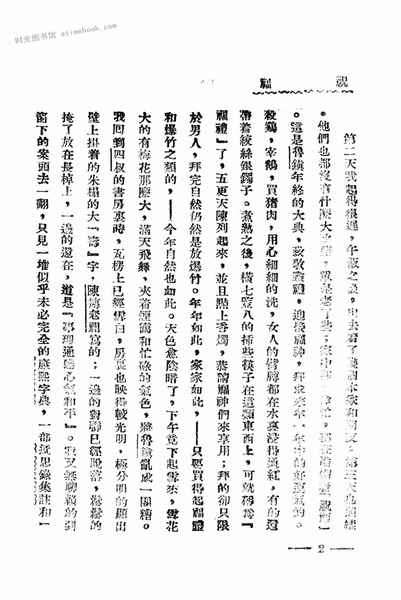 时光图书馆 atimebook.com
祝福
第二天我起得很遲，午飯之後，出去看了幾個本家和朋友；第三天也照樣
。他們也都沒有什麼大改變，單是老了些；家中却一律忙，都在準備着『祝福』
。這是魯鎮年終的大典，致敬盡禮，迎接福神，拜求來年一年中的好運氣的。
殺鷄，宰鵝，買猪肉，用心細細的洗，女人的臂膊都在水裏浸得通紅，有的還
帶着絞絲銀鐲子。煑熟之後，橫七豎八的插些筷子在這類東西上，可就稱爲『
福禮』了，五更天陳列起來，並且點上香燭，恭請福神們來享用；拜的却只限
於男人，拜完自然仍然是放爆竹。年年如此，家家如此，——只要買得起福禮
和爆竹之類的，——今年自然也如此。天色愈陰暗了，下午竟下起雪來，雪花
大的有梅花那麼大，滿天飛舞，夾着烟靄和忙碌的氣色，將魯鎮亂成一團糟。
我回到四叔的書房裏時，瓦楞上已經雪白，房裏也映得較光明，極分明的顯出
壁上掛着的朱搨的大『壽』字，陳摶老祖寫的；一邊的對聯已經脫落，鬆鬆的
捲了放在長桌上，一邊的還在，道是『事理通達心氣和平』。我又無聊賴的到
窗下的案頭去一翻，只見一堆似乎未必完全的康熙字典，一部近思錄集註和一
—2—